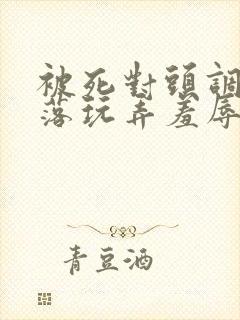 被死對頭調
落玩弄羞辱
青豆酒